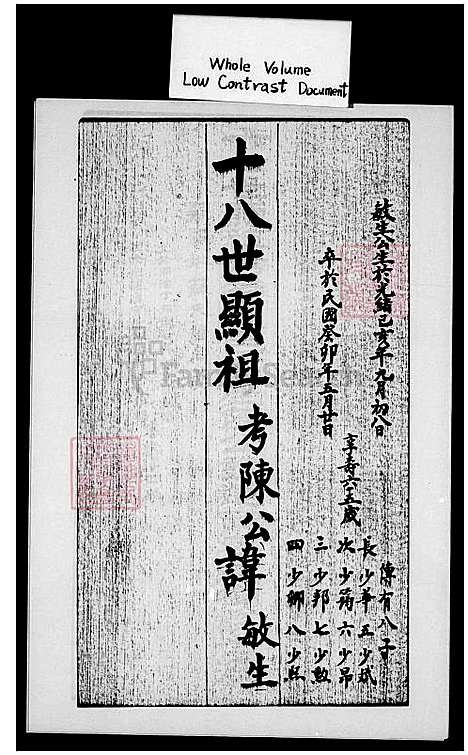 Whole Volume
Low Contrast Document
敏生公生於光緒己亥年九月初八日
卒於民國癸卯年五月廿日
享壽六十五歲
傳有八子
長少華 五少斌
次少筠 六少昂
三少邦 七少勲
四少卿 八少熙
十八世顯祖考陳公諱敏生